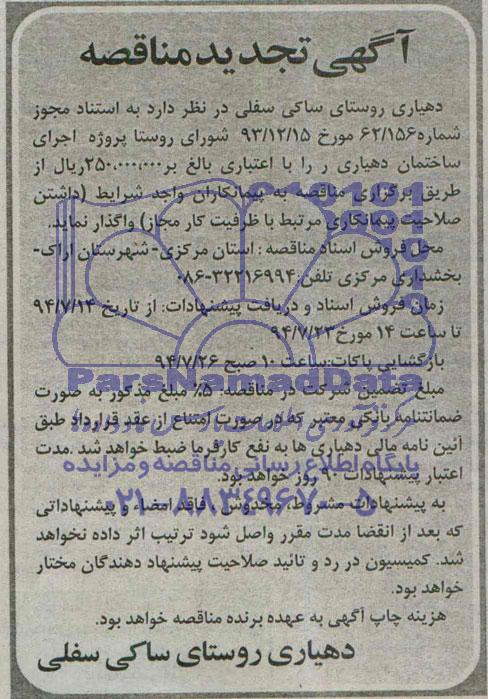 آگهی تجدید مناقصه
دهیاری روستای ساکی سفلی در نظر دارد به استناد مجوز
شماره ۶۲/۱۵۶ مورخ ۹۳/۱۲/۱۵ شورای روستا پروژه اجرای
ساختمان دهیاری و را با اعتباری بالغ بر ۲۵۰،۰۰۰،۰۰۰ریال از
طریق برگزاری مناقصه به پیمانکاران واجد شرایط (داشتن
صلاحیت پیمانکاری مرتبط با ظرفیت کار مجاز) واگذار نماید.
محل فروش اسناد مناقصه : استان مرکزی- شهرستان اراک-
بخشداری مرکزی تلفن:۳۲۲۱۶۹۹۴-۰۸۶
زمان فروش اسناد و دریافت پیشنهادات: از تاریخ ۹۴/۷/۱۴
تا ساعت ۱۴ مورخ ۹۴/۷/۲۳
بازگشایی پاکات:ساعت ۱۰ صبح ۹۴/۷/۲۶
ParsNamadData
مبلغ تضمین شرکت در مناقصه: ۵٪ مبلغ مذکور به صورت
ضمانتنامه بانکی معتبر که در صورت امتناع از عقد قرارداد طبق
آئین نامه مالی دهیاری ها به نفع کارفرما ضبط خواهد شد .مدت
پایگاه اطلاع رسانی مناقصه و مزایده
اعتبار پیشنهادات ۹۰ روز خواهد بود.
۰۲۱-۸۸۳۴۹۶۷۰-۵
به پیشنهادات مشروط، مخدوش ، فاقد امضاء و پیشنهاداتی
که بعد از انقضا مدت مقرر واصل شود ترتیب اثر داده نخواهد
شد. کمیسیون در رد و تائید صلاحیت پیشنهاد دهندگان مختار
خواهد بود.
هزینه چاپ آگهی به عهده برنده مناقصه خواهد بود.
دهیاری روستای ساکی سفلی